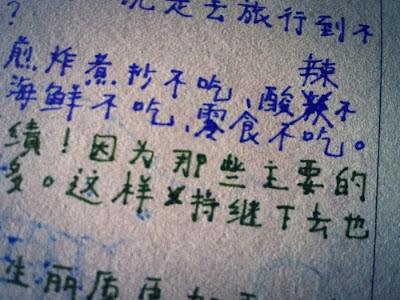 ? 是去旅行到不
煎炸煮抄不吃、酸辣不
海鲜不吃、零食不吃。
績！因为那些主要的
多。这样持继下去也
生丽质更加